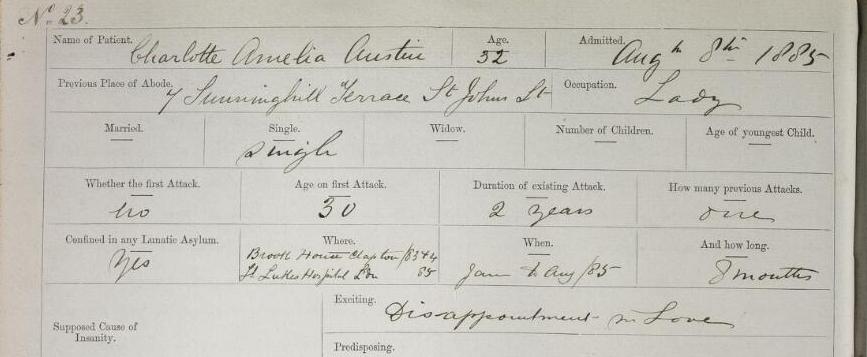 No. 23.
Name of Patient. Charlotte Amelia Austin Age. 32 Admitted. Augth 8th 1885
Previous Place of Abode. 7 Sunninghill Terrace St Johns St Occupation. Lady
Married. Single. Widow. Number of Children. Age of youngest Child.
Single
Whether the first Attack. Age on first Attack. Duration of existing Attack. How many previous Attacks.
no 30 2 years one
Confined in any Lunatic Asylum. Where. When. And how long.
Yes Brook House Clapton /83+4 Jan to Aug /85 8 months
St Lukes Hospital Ldn 85
Exciting. Disappointment in Love
Supposed Cause of
Insanity.
Predisposing.